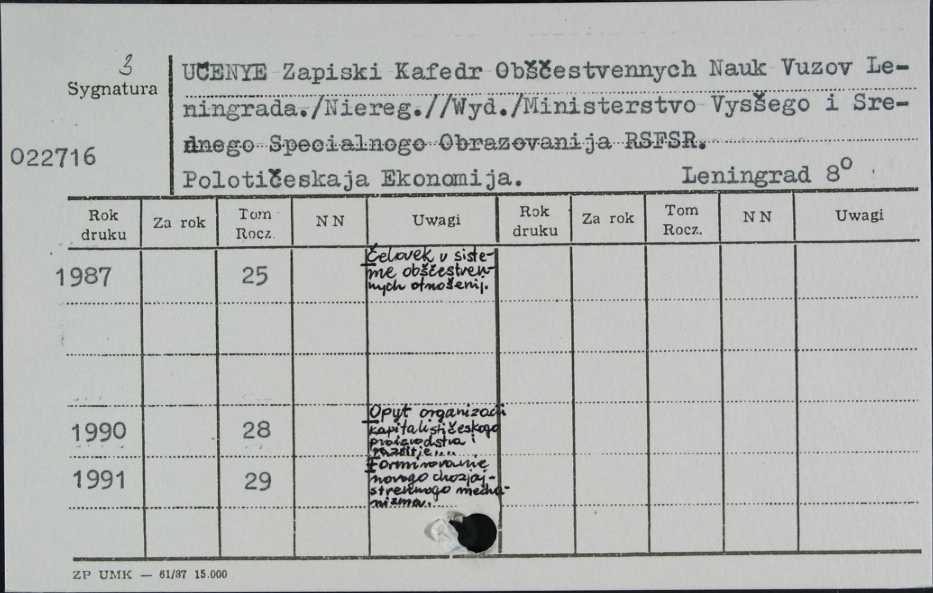 3
Sygnatura
022716
UČENYE Zapiski Kafedr Obščestvennych Nauk Vuzov Le-
ningrada./Niereg.//Wyd./Ministerstvo Vysšego i Sre-
dnego Specialnogo Obrazovanija RSFSR.
Polotičeskaja Ekonomija. Leningrad 8⁰
Rok druku Za rok Tom Rocz. NN Uwagi Rok druku Za rok Tom Rocz. NN Uwagi
1987 25
Čelovek v siste-
me obščestven-
nych otnošenij.
1990 28
Opyt organizacii
kapitalističeskogo
proizvodstva i
1991 29
Formirovanie
novogo chozjaj-
stvennogo mecha-
nizma.
ZP UMK — 61/87 15.000